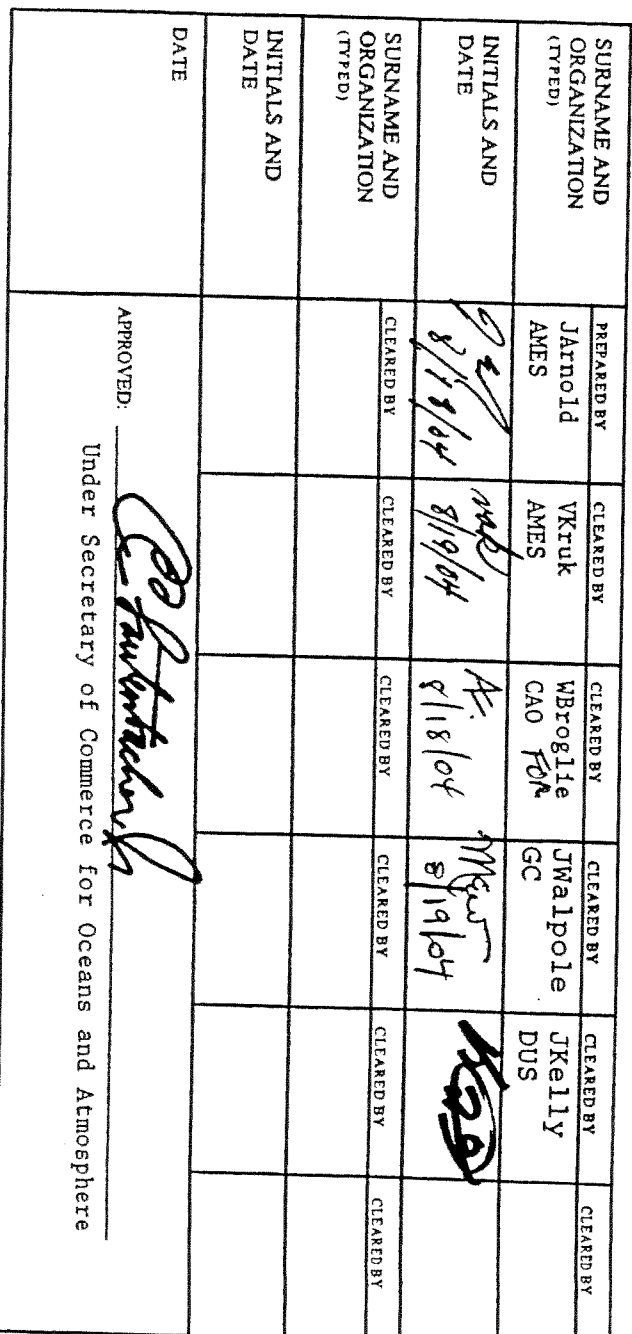 SURNAME AND
ORGANIZATION
(TYPED)
PREPARED BY
JArnold
AMES
CLEARED BY
VKruk
AMES
CLEARED BY
WBroglie
CAO FOR
CLEARED BY
JWalpole
GC
CLEARED BY
JKelly
DUS
CLEARED BY
INITIALS AND
DATE
8/18/04
8/19/04
8/18/04
8/19/04
SURNAME AND
ORGANIZATION
(TYPED)
CLEARED BY
CLEARED BY
CLEARED BY
CLEARED BY
CLEARED BY
CLEARED BY
INITIALS AND
DATE
DATE
APPROVED:
Under Secretary of Commerce for Oceans and Atmosphere